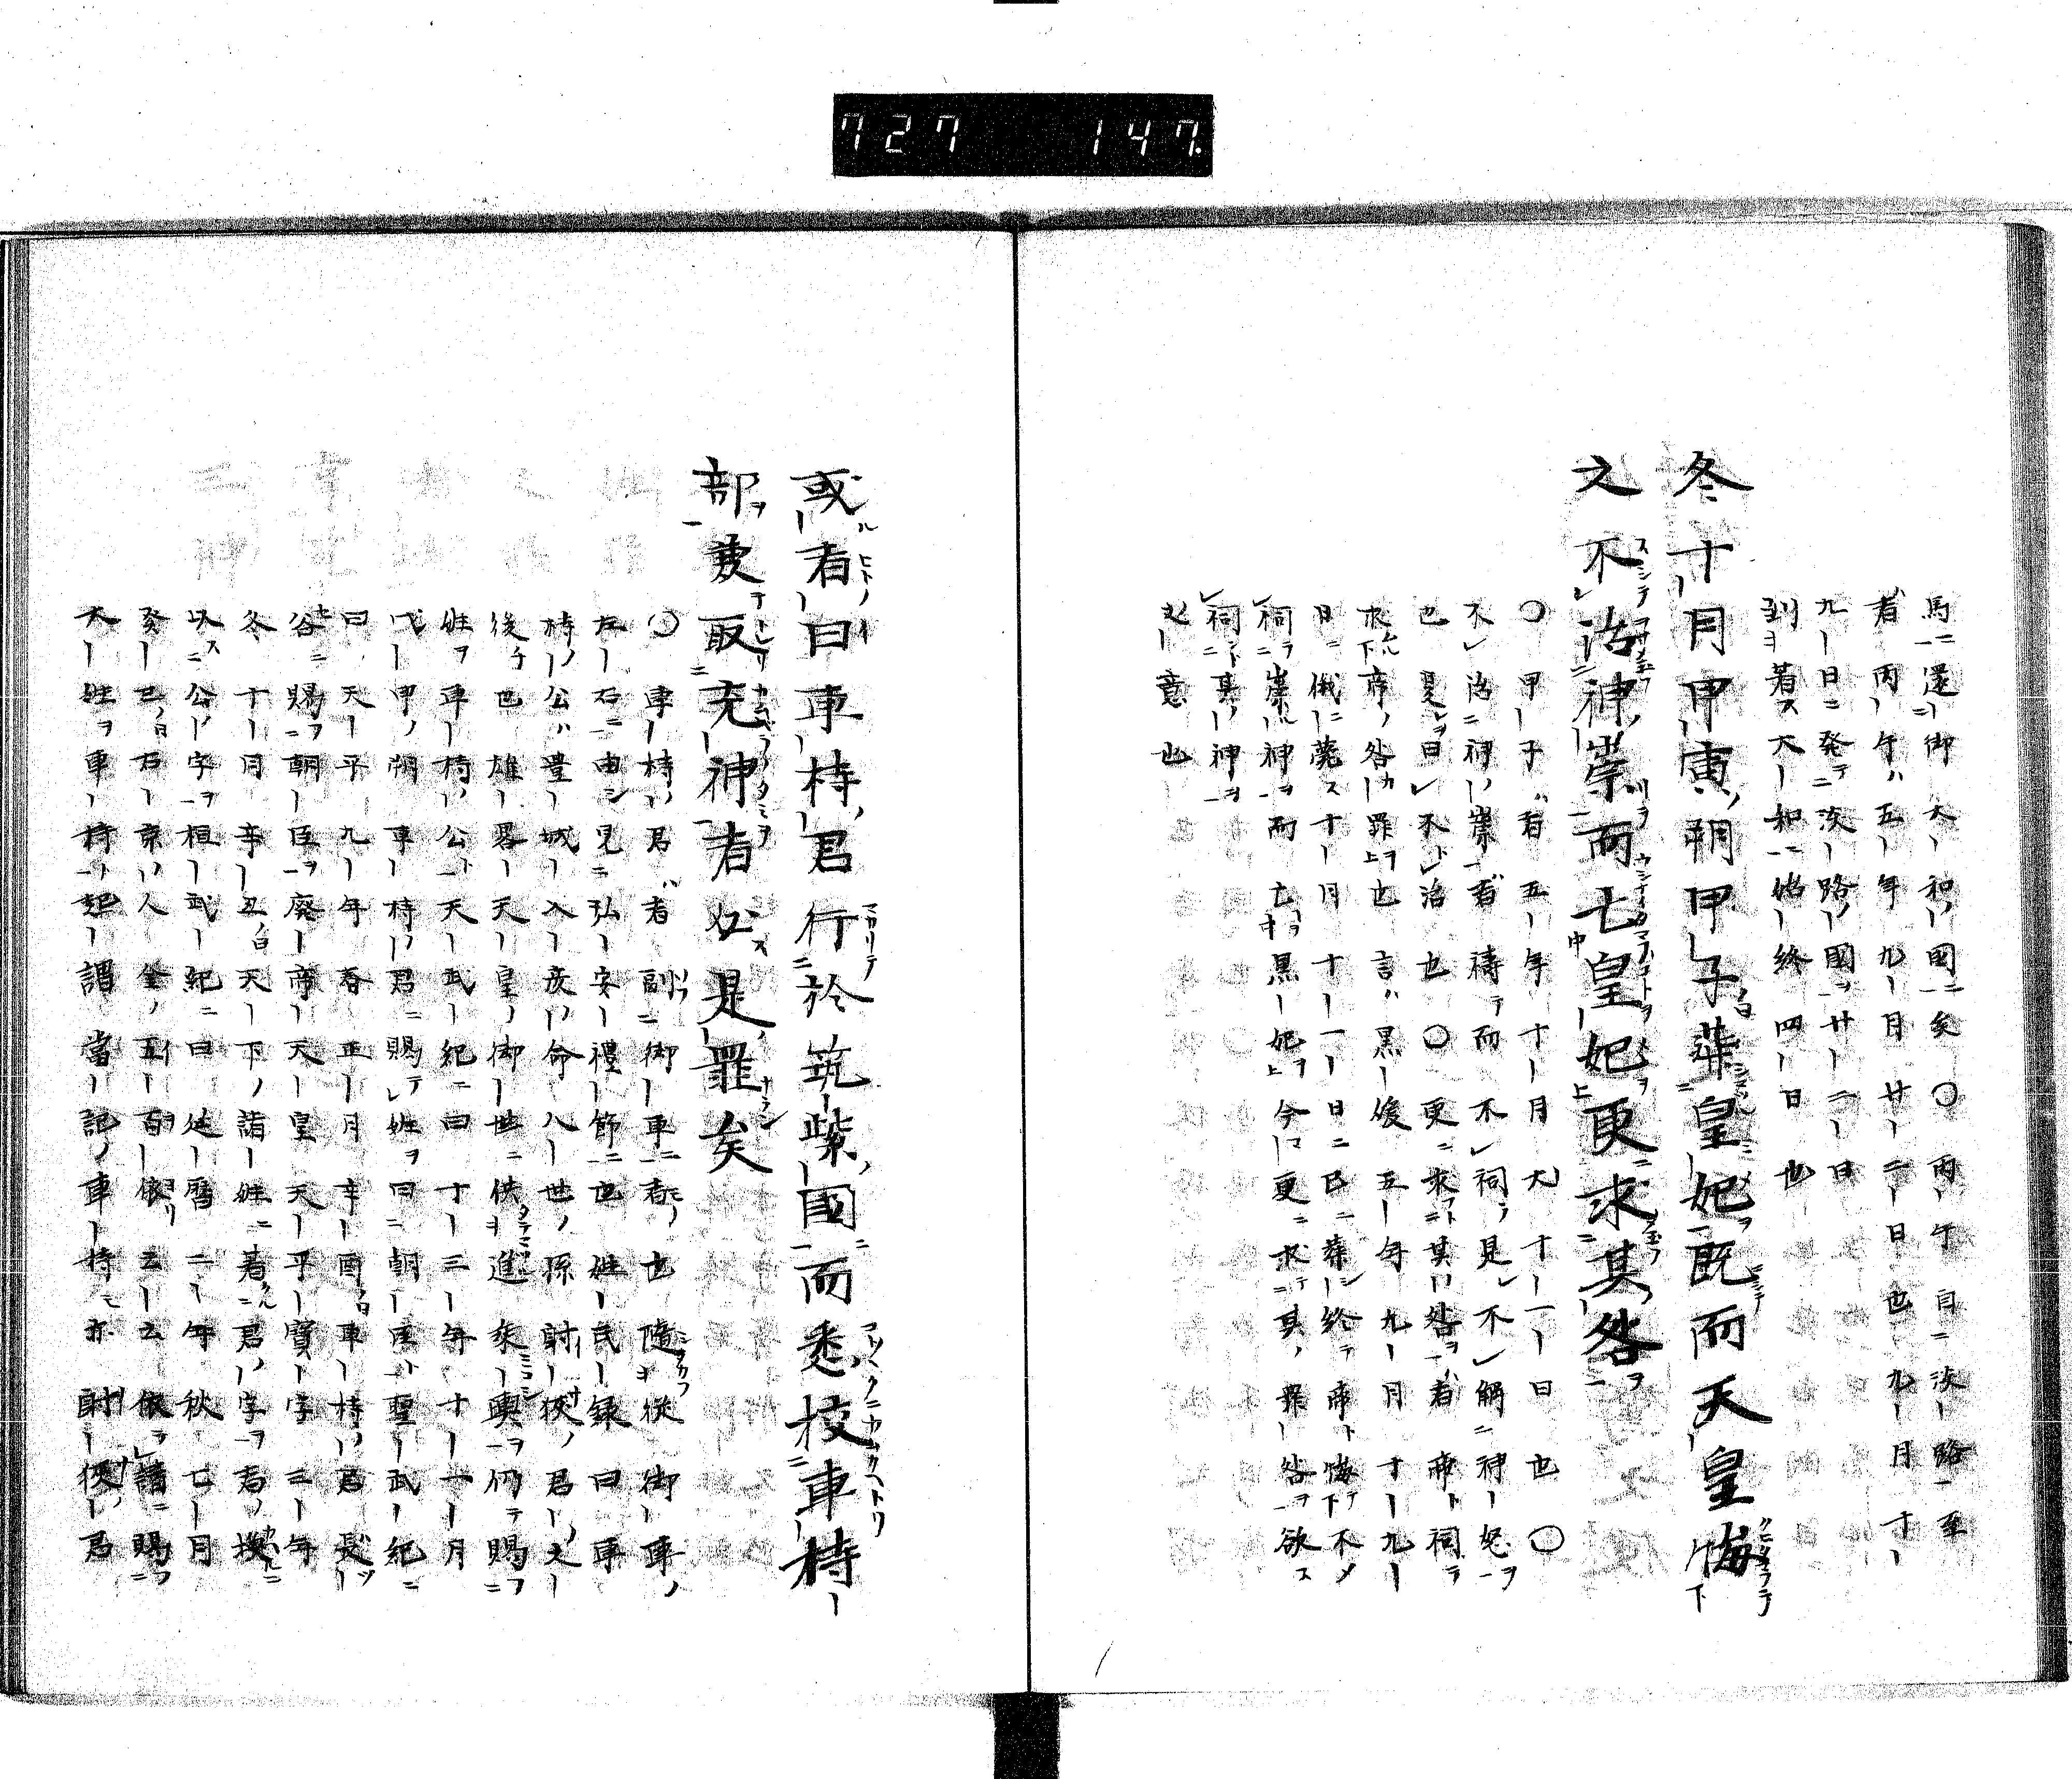 727 147.
馬還御大和國矣〇丙午自淡路至
者丙午ハ五年九月廿二日也九月十
九日発淡路國廿二日
到着ス大和始終四日也
冬十月甲寅朔甲子葬皇妃既而天皇悔
之不治神祟而亡皇妃更求其咎
〇甲子者五年十月大十一日也〇
不治神祟者禱而不祠是不解神怒
也旻曰不治也〇更求其咎者帝祠
求帝咎罪也言ハ黒媛五年九月十九
日俄薨ス十月十一日已葬終帝悔不
祠祟神而亡黒妃今更求其罪咎欲ス
祠其神
之意也
或者曰車持君行於筑紫國而悉校車持
部兼取充神者必是罪矣
〇車持君者副御車者也隨從御車
左右由見弘安禮節也姓氏録曰車
持公ハ豊城入彦命八世孫射狹君之
後也雄畧天皇御世供進乘輿仍賜
姓車持公天武紀曰十三年十一月
戊甲朔車持君賜姓曰朝臣聖武紀
曰天平九年春正月辛酉車持君長
谷賜朝臣廃帝天皇天平寳字三年
冬十月辛丑天下諸姓着君字者換
以公字桓武紀曰延暦二年秋七月
癸巳右京人金五百依云云依請賜
大姓車持起謂當記車持モ亦射狹君